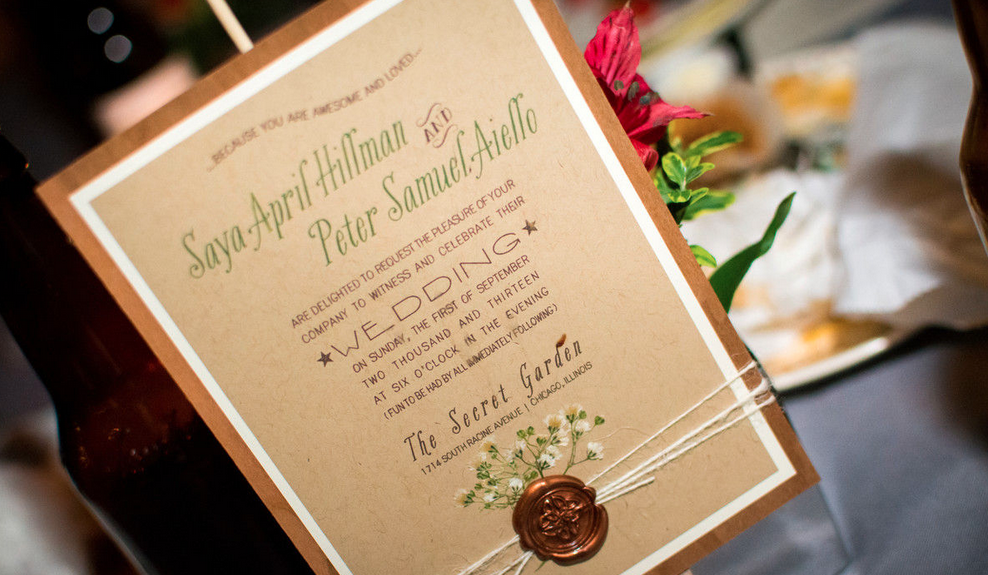 BECAUSE YOU ARE AWESOME AND LOVED...
Saya April Hillman AND
Peter Samuel Aiello
ARE DELIGHTED TO REQUEST THE PLEASURE OF YOUR
COMPANY TO WITNESS AND CELEBRATE THEIR
★WEDDING★
ON SUNDAY, THE FIRST OF SEPTEMBER
TWO THOUSAND AND THIRTEEN
AT SIX O'CLOCK IN THE EVENING
(FUN TO BE HAD BY ALL IMMEDIATELY FOLLOWING)
The Secret Garden
1714 SOUTH RACINE AVENUE | CHICAGO, ILLINOIS